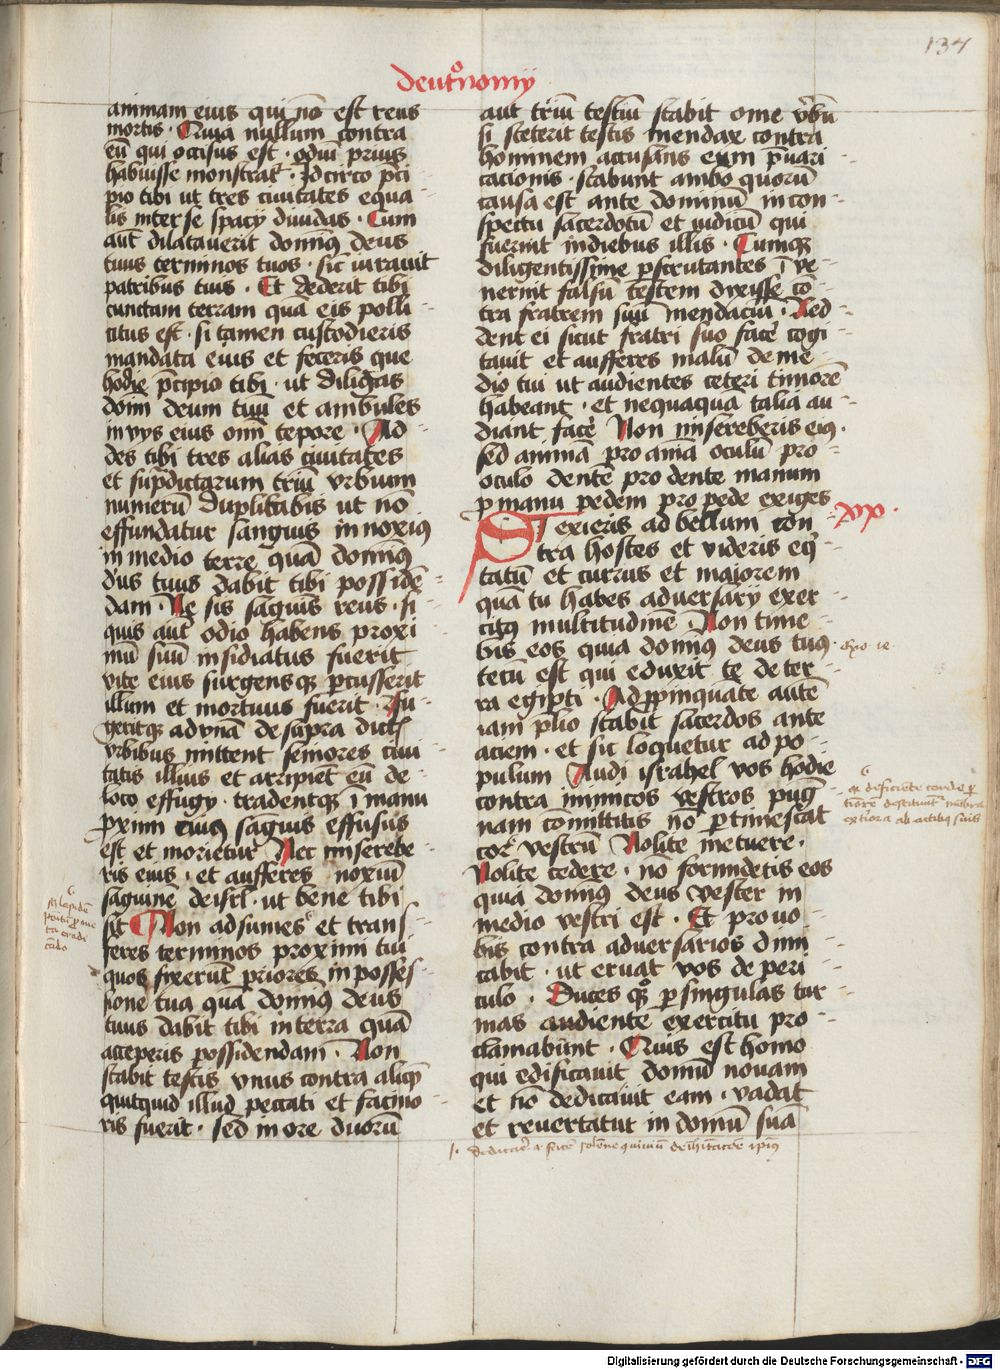 137
deutᵒnomij
animam eius qui nō est reus
mortis · Quia nullum contra
eū qui occisus est · odiū prius
habuisse monstrat᷑ · Idcirco p̄ci
pio tibi ut tres ciuitates equa
lis inter se spacij diuidas · Cum
aut̄ dilatauerit domin9 deus
tuus terminos tuos · sic̄ iurauit
patribus tuis · Et dederit tibi
cunctam terram quā eis polli
citus est · si tamen custodieris
mandata eius et feceris que
hodie p̄cipio tibi · ut diligas
dom̄ deum tuū et ambules
in vijs eius om̄i tēpore · Ad
des tibi tres alias ciuitates
et sup̄dictarum triū vrbium
numerū duplicabis ut nō
effundatur sanguis innoxi9
in medio terre quā domin9
d̄us tuus dabit tibi possidē
dam · Ne sis sāguīs reus · si
quis aut̄ odio habens proxi
mū suū insidiatus fuerit
vite eius surgensq3 p̄cusserit
illum et mortuus fuerit · Fu
geritq3 ad vnā de supra dict̄
vrbibus mittent seniores ciui
tatis illius et arripiet̄ eū de
loco effugij · tradentq3 ī manu
proximi cui9 sāguis effusus
est et morietur Nec miserebe
ris eius · et aufferes noxiū
sāguinē de isrl̄ · ut bene tibi
sit Non adsumes et trans
feres terminos proximi tui
quos fixerūt priores in posses
sione tua quā domin9 deus
tuus dabit tibi in terra quā
acceperis possidendam · Non
stabit testis vnus contra aliq̄
quitquid illud peccati et facino
ris fuerit · sed in ore duorū
aut triū testiū stabit om̄e v̄bū
si steterit testis mendax contra
hominem accusans eum p̄uari
cacionis · stabunt ambo quorū
causa est ante dominū in con
spectu sacerdotū et iudicū qui
fuerint in diebus illis · Cumq3
diligentissime p̄scrutantes ī ve
nerint falsū testem dixisse cō
tra fratrem suū mendaciū · Red
dent ei sicut fratri suo facē cogi
tauit et aufferes malū de me
dio tui ut audientes ceteri timorē
habeant · et nequaquā talia au
diant facē Non misereberis ei9 ·
sed animā pro aīma oculū pro
oculo dentē pro dente manum
p manu pedem pro pede exiges
SI exieris ad bellum con xx ·
tra hostes et videris eq̄
tatū et currus et maiorem
quā tu habes aduersarij exer
cit9 multitudinē · Non time
bis eos quia domin9 deus tu9
tecū est qui eduxit te de ter
ra egipti · Adp̄pinquate autē
iam p̄lio stabit sacerdos ante
aciem · et sic loquetur ad po
pulum Audi israhel vos hodie
contra inimicos vestros puḡ
nam cōmittitis nō p̄timescat
cor vestrū Nolite metuere ·
Nolite cedere · nō formidetis eos
quia domin9 deus vester in
medio vestri est · Et pro vo
bis contra aduersarios dimi
cabit · ut eruat vos de peri
culo · Duces q̄ᵒ p singulas tur
mas audiente exercitu pro
clamabunt · Quis est homo
qui edificauit domū nouam
et nō dedicauit eam · vadat
et reuertatur in domū suā